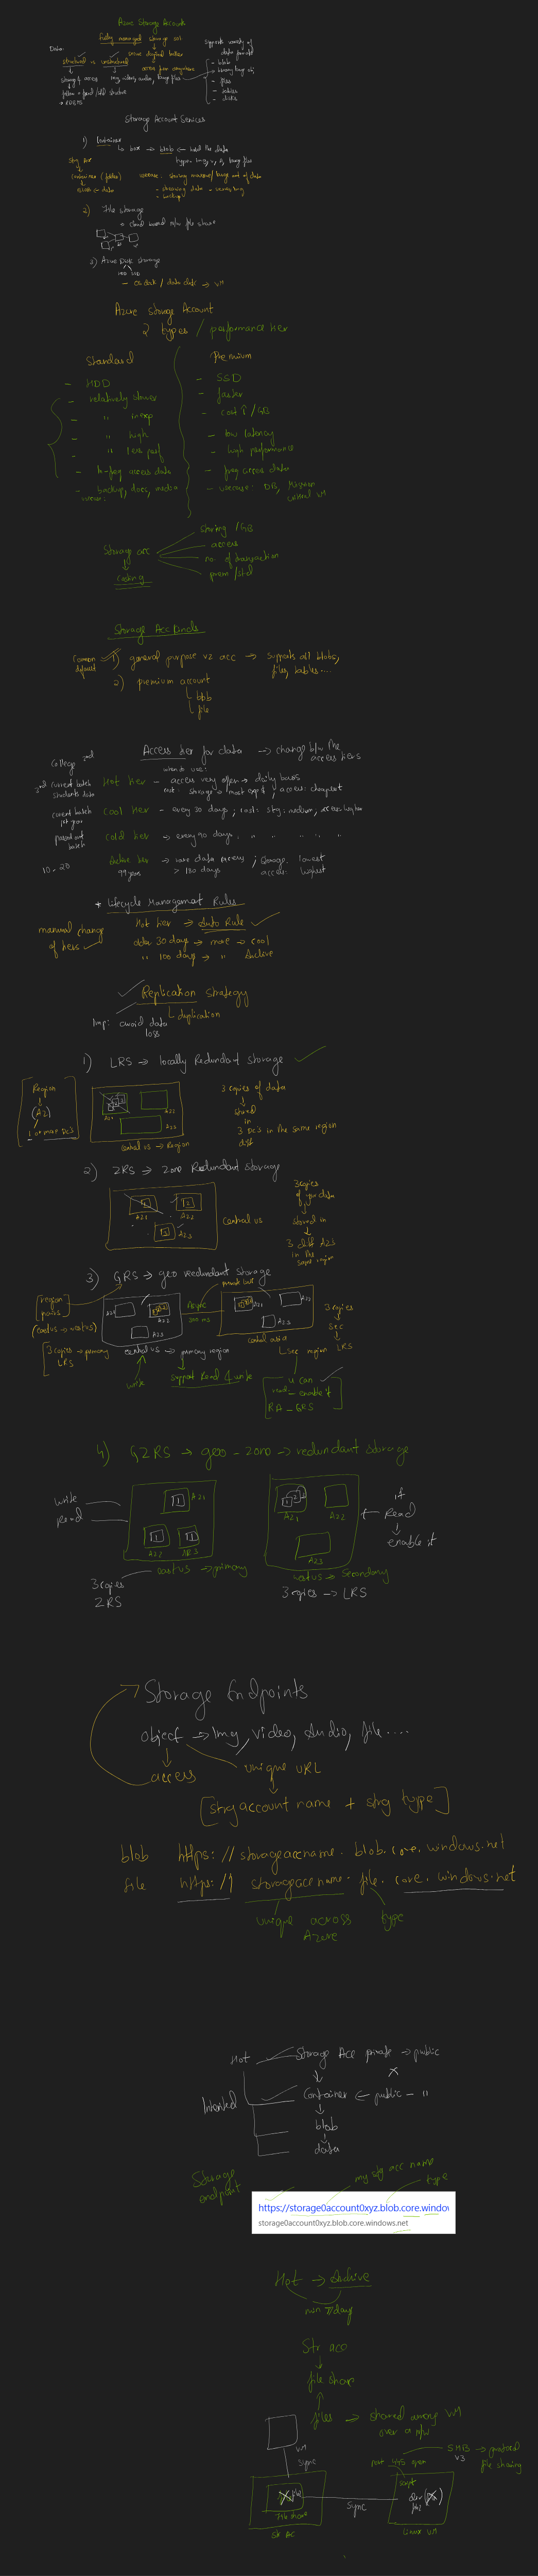 Azure Storage Account
fully managed storage acc
store digital data
access from anywhere
supports variety of
data format
- blob
- files
- tables
- disks
Data:
structured vs unstructured
img, videos, audio, large files
→ RDBMS
Storage Account Services
1) Container
box → blob ← hold the data
container (folder)
usecase: storing massive/large amt of data
- streaming data
- backup
2) File storage
cloud based n/w file share
3) Azure Disk storage
HDD SSD
- OS disk / data disk → VM
Azure storage Account
2 types / performance tier
Standard
- HDD
- relatively slower
- " inexp
- " high
- " less perf
- in-freq access data
- backup, docs, media
Premium
- SSD
- faster
- cost ↑ / GB
- low latency
- high performance
- freq access data
- usecase: DB, Mission
critical VM
Storage acc
storing /GB
access
no. of transaction
prem /std
Storage Acc kinds
Common
default
1) general purpose v2 acc → supports all blobs,
files, tables....
2) premium account
blob
file
Access tier for data → change b/w the
access tiers
when to use:
College
3rd current batch
students data
Hot tier - access very often → daily basis
cost: storage → most exp ; access: cheapest
current batch
1st year
Cool tier - every 30 days ; cost: stg: medium, access: higher
passed out
batch
Cold tier → every 90 days. " " " " "
10-20
Archive tier → rare data access ; storage: lowest
99 years > 180 days access: highest
* Lifecycle Management Rules
manual change
of tiers
Hot tier → Auto Rule
older 30 days → move → cool
" 100 days → " Archive
Replication strategy
duplication
imp: avoid data
loss
1) LRS → locally Redundant storage
Region
(AZ)
1 or more DC's
AZ1
AZ2
AZ3
central us → Region
3 copies of data
stored
in
3 DC's in the same region
2) ZRS → zone Redundant storage
AZ1
AZ2
AZ3
central us
3 copies
of your data
stored in
3 diff AZ's
in the
same region
3) GRS → geo redundant storage
region
pairs
(eastus → westus)
3 copies → primary
LRS
private link
Async
AZ1
AZ2
AZ3
central us → primary region
write
support Read & write
central india
sec region
3 copies
sec
LRS
u can
read - enable it
RA-GRS
4) GZRS → geo-zone → redundant storage
write
read
AZ1
AZ2
AZ3
eastus → primary
3 copies
ZRS
AZ1
AZ2
AZ3
westus → secondary
3 copies → LRS
if
Read
enable it
Storage Endpoints
object → img, video, audio, file....
access
unique URL
[strg account name + strg type]
blob https://storageaccname.blob.core.windows.net
file https:// storageaccname.file.core.windows.net
unique across
Azure
type
Hot
Storage Acc private → public
Inherited
Container ← public - "
blob
data
Storage
endpoint
my stg acc name
type
https://storage0account0xyz.blob.core.windov
storage0account0xyz.blob.core.windows.net
Hot → Archive
Str acc
file share
files → shared among VM
over a n/w
VM
sync
SMB → protocol
v3 file sharing
port 445 open
script
file share
str acc
sync
Linux VM